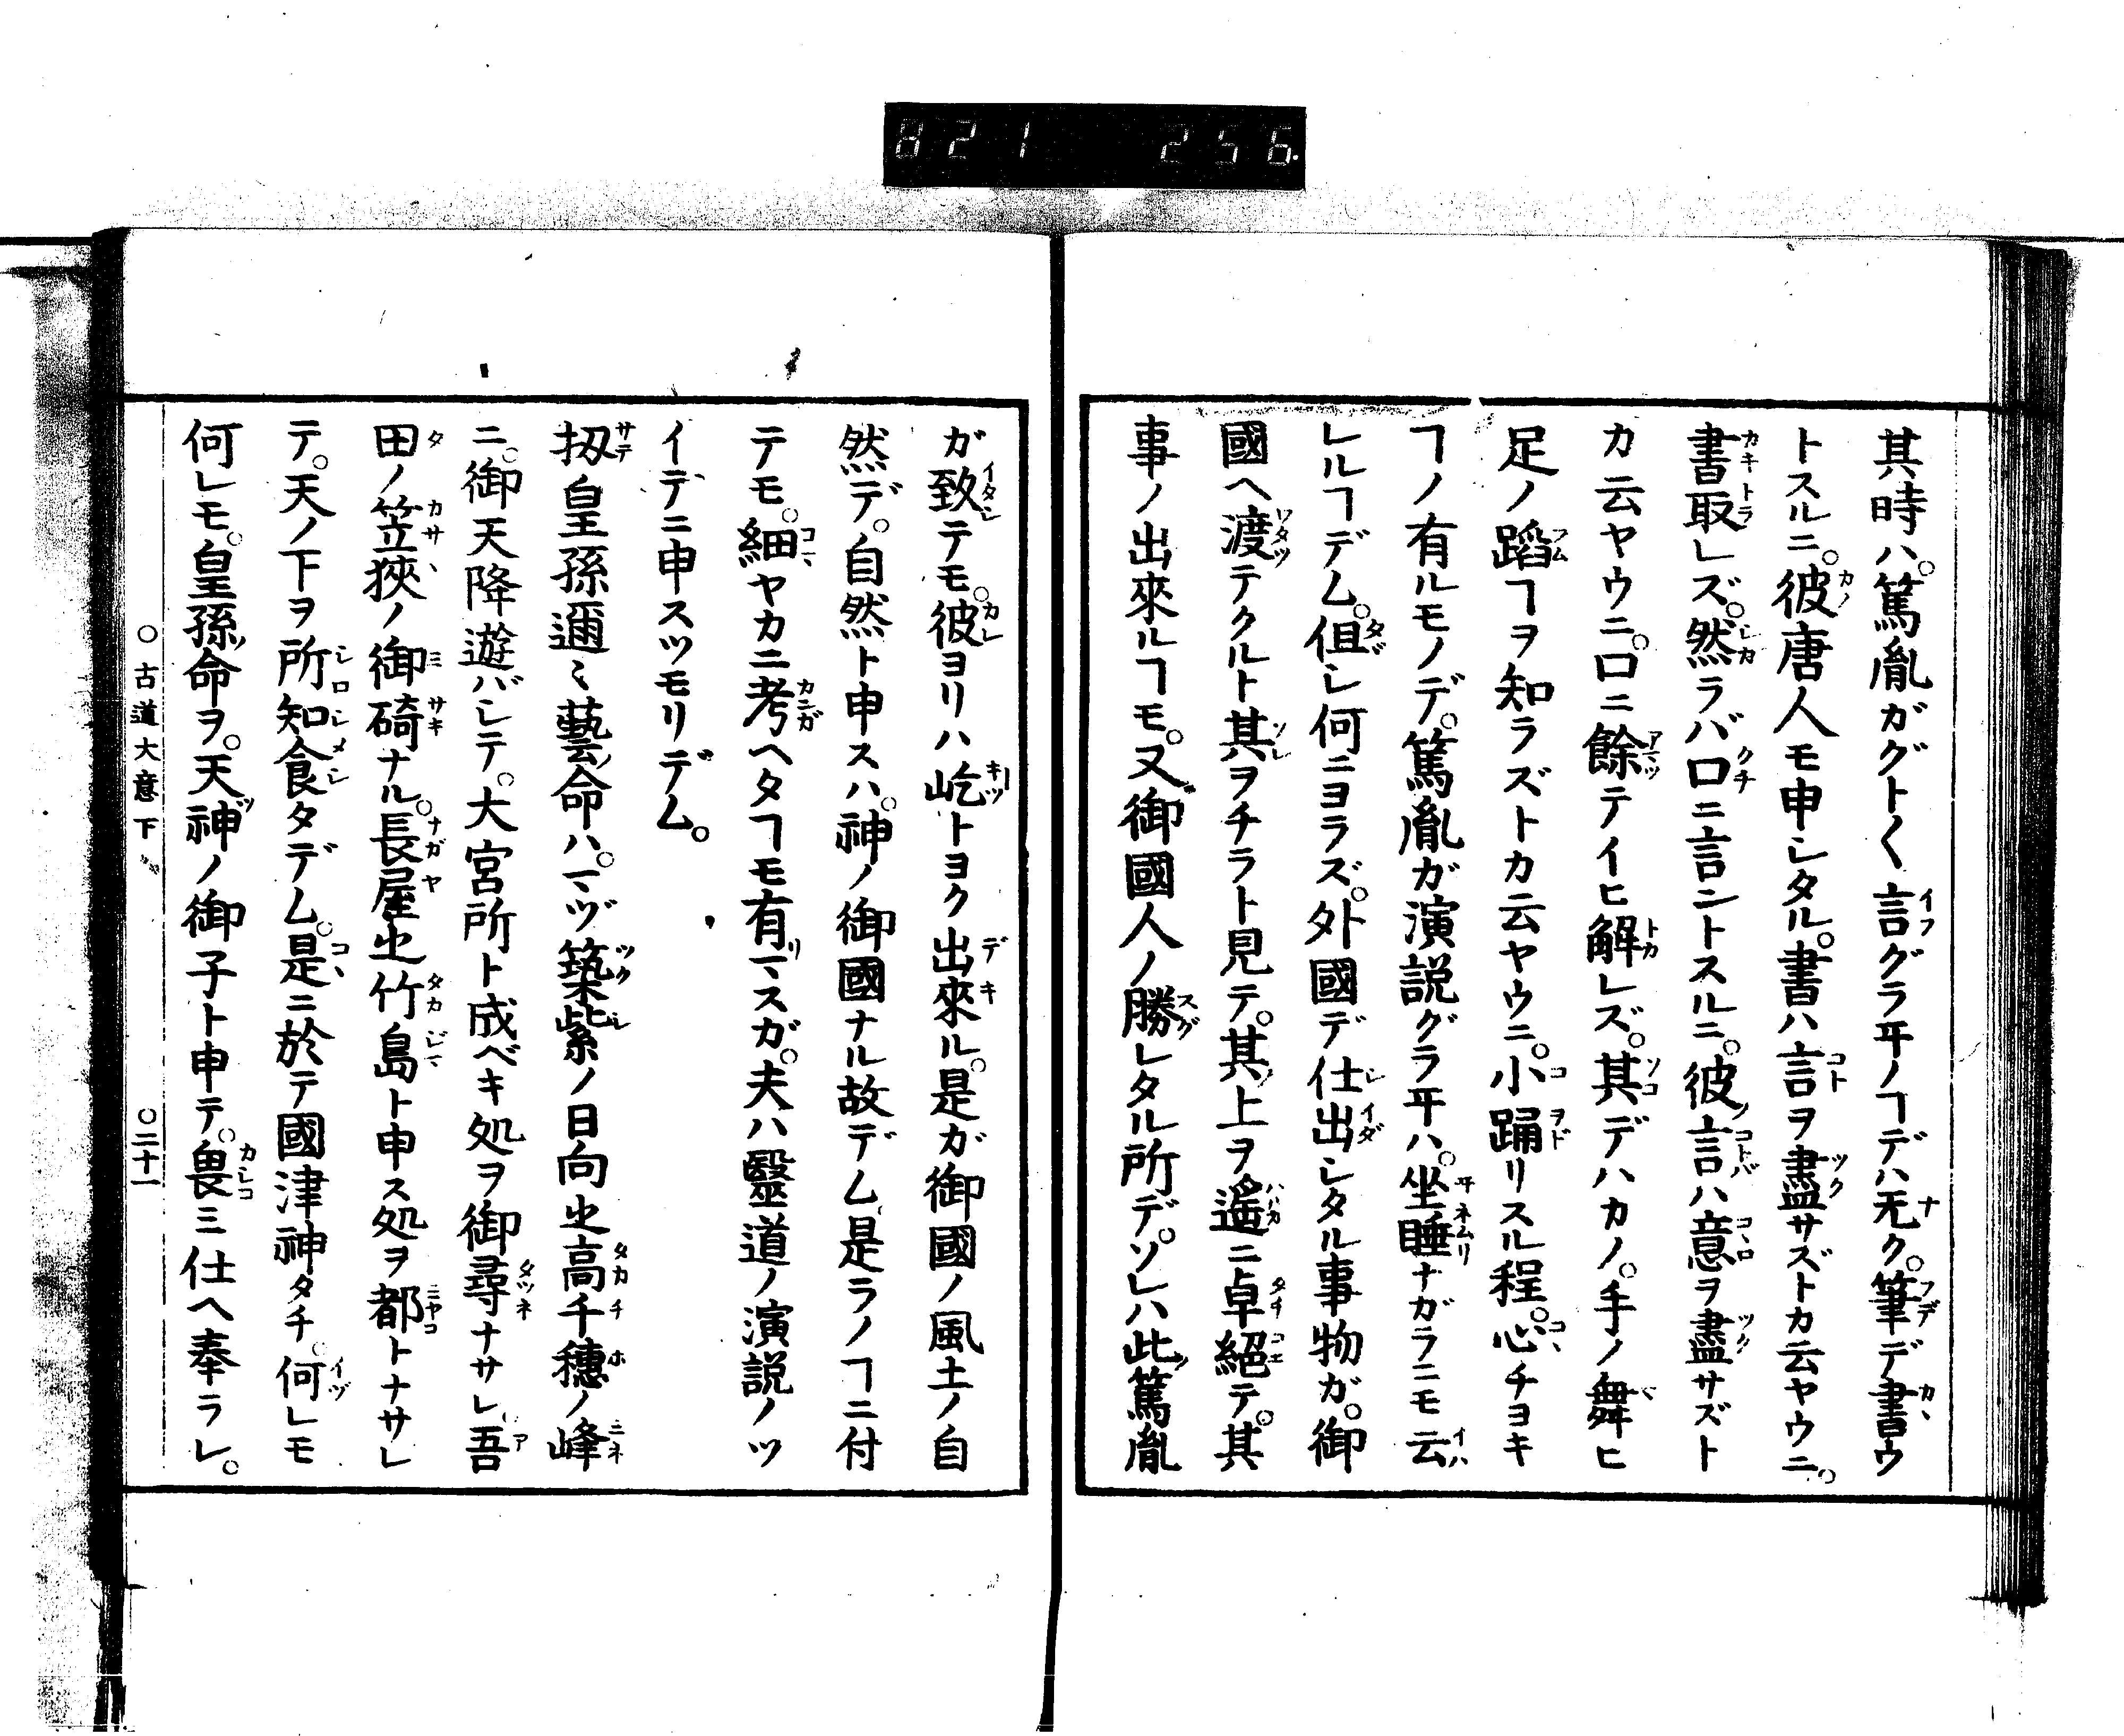 821 256
其時ハ。篤胤ガグト〱言グラ平ノヿデハ无ク。筆デ書ウ
トスルニ。彼唐人モ申シタル。書ハ言ヲ盡サズトカ云ヤウニ。
書取レズ。然ラバ口ニ言ントスルニ。彼言ハ意ヲ盡サズト
カ云ヤウニ。口ニ餘テイヒ解レズ。其デハカノ。手ノ舞ヒ
足ノ蹈ヿヲ知ラズトカ云ヤウニ。小踊リスル程。心チヨキ
ヿノ有ルモノデ。篤胤ガ演説グラ平ハ。坐睡ナガラニモ云
レルヿデム。伹シ何ニヨラズ。外國デ仕出シタル事物ガ。御
國ヘ渡テクルト其ヲチラト見テ。其上ヲ遙ニ卓絕テ。其
事ノ出來ルヿモ。又御國人ノ勝レタル所デ。ソレハ此篤胤
ガ致テモ。彼ヨリハ屹トヨク出來ル。是ガ御國ノ風土ノ自
然デ。自然ト申スハ。神ノ御國ナル故デム。是ラノヿニ付
テモ。細ヤカニ考ヘタヿモ有マスガ。夫ハ醫道ノ演説ノツ
イデニ申スツモリデム。
扨皇孫邇々藝命ハ。マヅ築紫ノ日向之高千穗ノ峰
ニ。御天降遊バシテ。大宮所ト成ベキ処ヲ御尋ナサレ吾
田ノ笠狹ノ御碕ナル。長屋之竹島ト申ス処ヲ都トナサレ
テ。天ノ下ヲ所知食タデム。是ニ於テ國津神タチ。何レモ
何レモ。皇孫命ヲ。天神ノ御子ト申テ。畏ミ仕ヘ奉ラレ。
○古道大意下 ○二十一